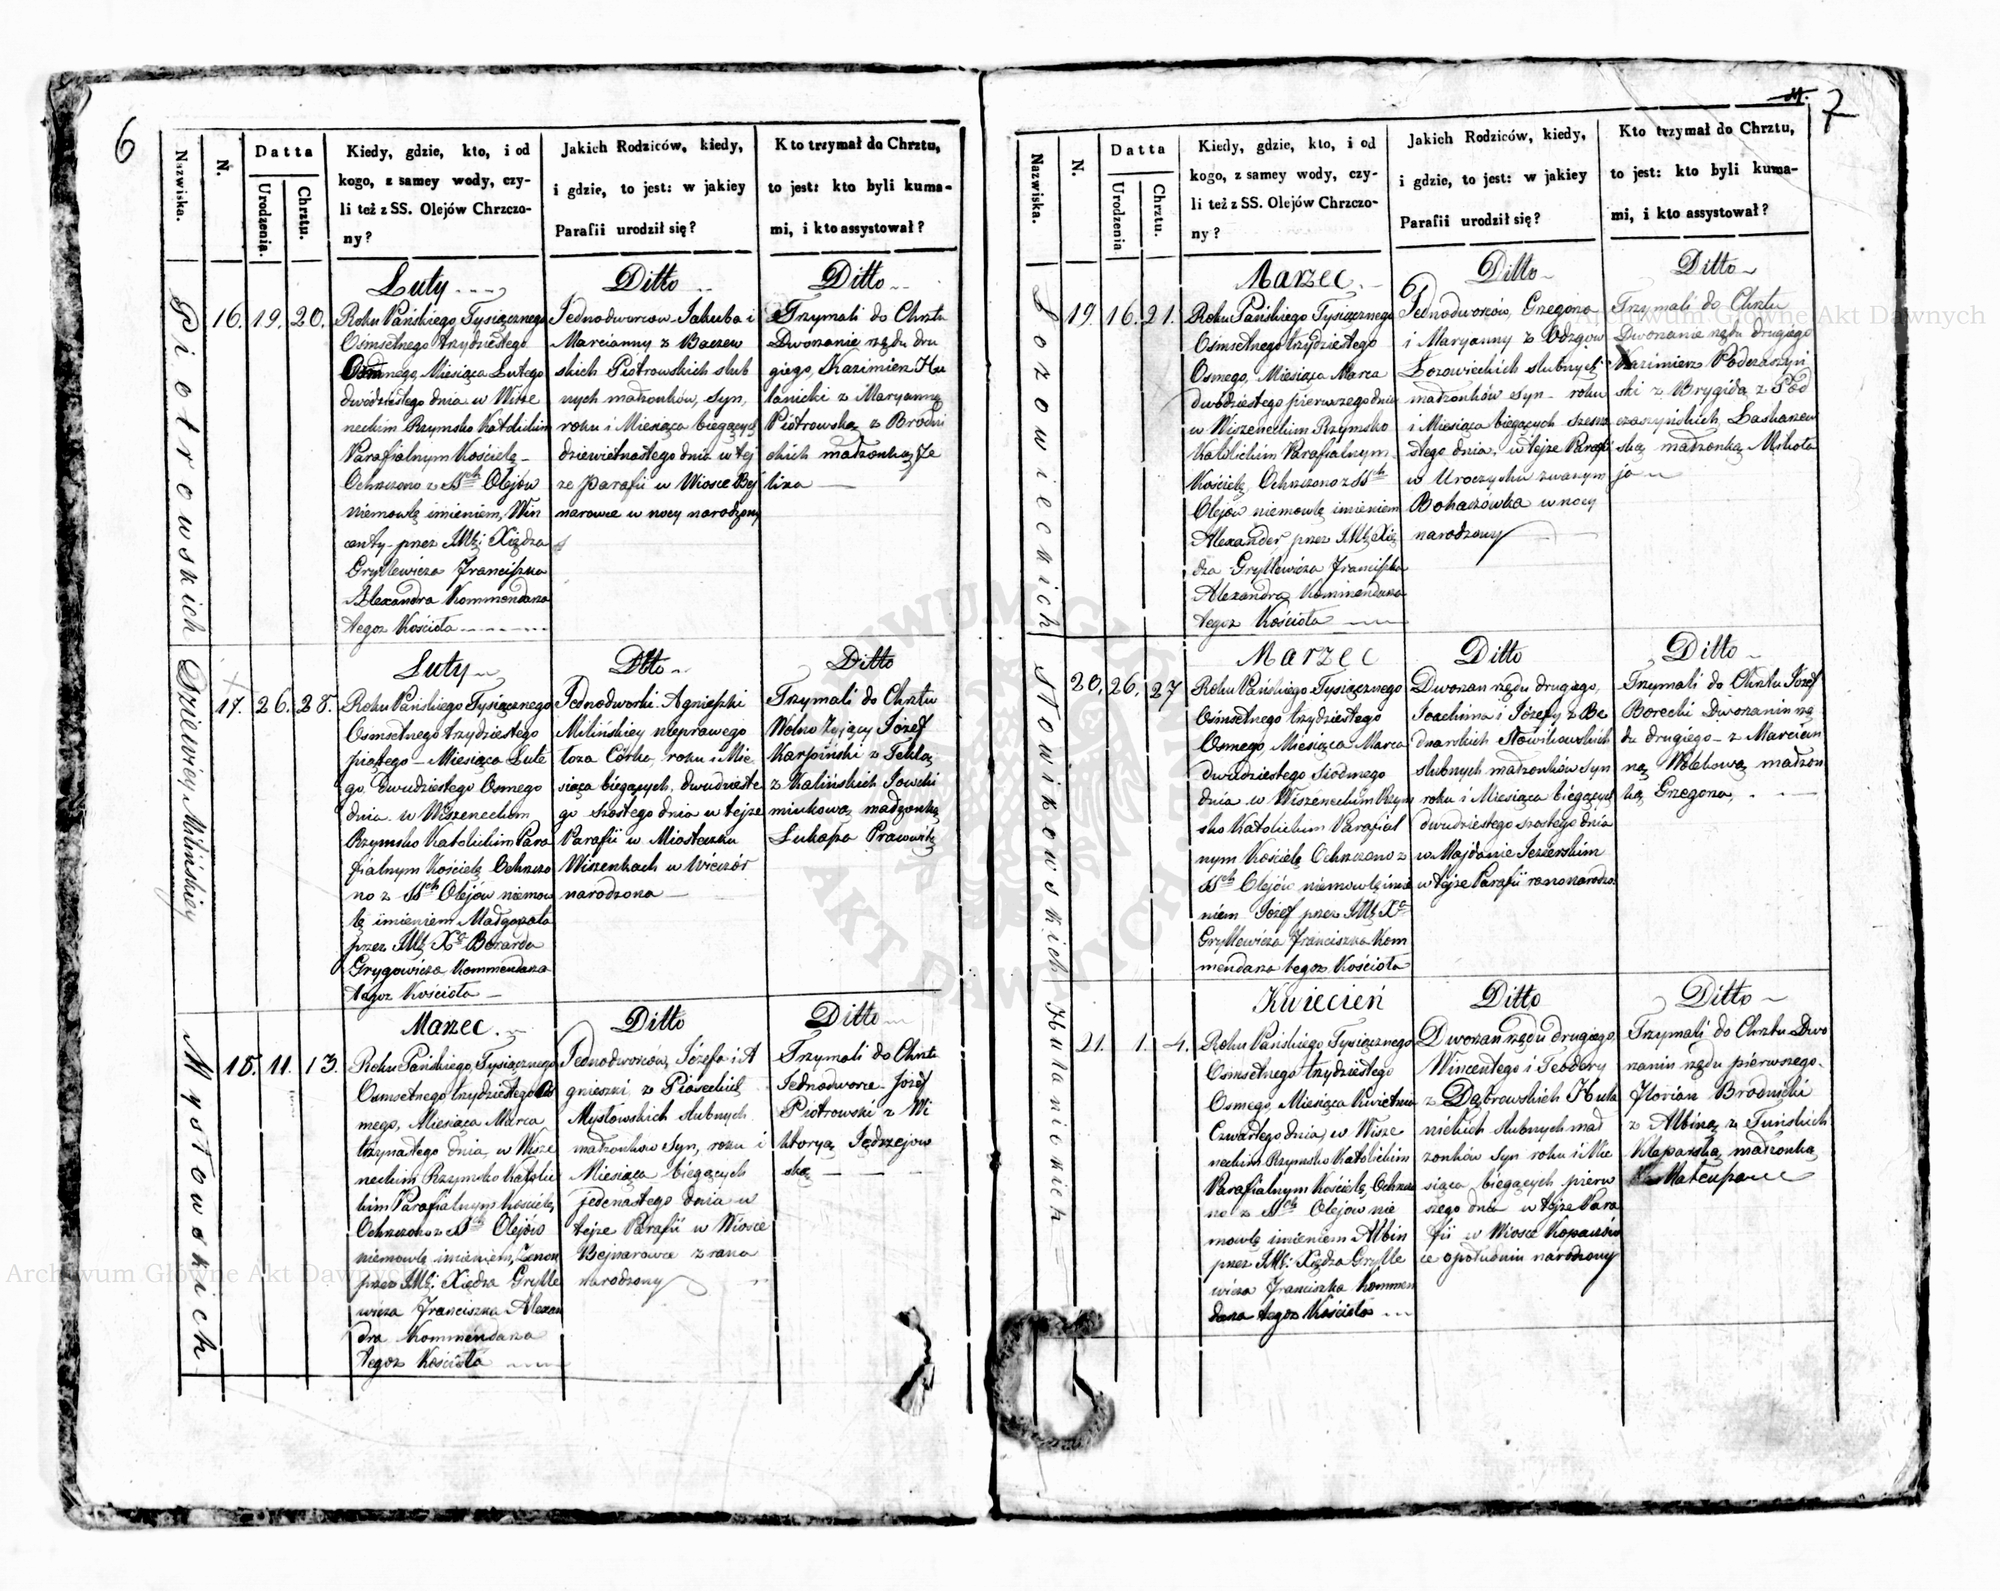 6
Nazwiska.
N.
Datta
Urodzenia.
Chrztu.
Kiedy, gdzie, kto, i od
kogo, z samey wody, czy-
li też z SS. Olejów Chrzczo-
ny?
Jakich Rodziców, kiedy,
i gdzie, to jest: w jakiey
Parafii urodził się?
Kto trzymał do Chrztu,
to jest: kto byli kuma-
mi, i kto assystował?
Piotrowskich
16. 19. 20.
Luty
Roku Pańskiego Tysiącznego
Osmsetnego trzydziestego
Osmego, Miesiąca Lutego
dwódziestego dnia w Wisze
neckim Rzymsko Katolickim
Parafialnym Kościele
Ochrzczono z SSch Olejów
niemowlę imieniem, Win
centy przez JMć Xiędza
Gryllewicza Franciszka
Alexandra Kommendarza
tegoz Kościoła
Ditto
Jednodworców Jakuba i
Marcianny z Baczew
skich Piotrowskich slub
nych małzonków, Syn,
roku i Miesiąca biegących
dziewietnastego dnia w tej
ze Parafii w Wiosce Bej
narowce w nocy narodzony
Ditto
Trzymali do Chrztu
Dworzanie rzędu dru
giego, Kazimierz Hu
lanicki z Maryanną
Piotrowską z Brodni
ckich małzonką Fe
lixa
Dziewicy Milińskiey
17. 26. 28.
Luty
Roku Pańskiego Tysiącznego
Osmsetnego trzydziestego
piątego Miesiąca Lute
go dwudziestego Osmego
dnia w Wiszeneckim
Rzymsko Katolickim Para
fialnym Kościele Ochrzczo
no z SSch Olejów niemow
lę imieniem Małgorzata
przez JMć Xa Bernarda
Grygowicza Kommendarza
tegoz Kościoła
Ditto
Jednodworki Agnieszki
Milińskiey nieprawego
łoza Córka, roku i Mie
siąca biegących, dwudzieste
go szostego dnia w tejze
Parafii w Miasteczku
Wiszenkach w wieczór
narodzona
Ditto
Trzymali do Chrztu
Wolno Zyjący Józef
Karpiński z Teklą
z Kalińskich
małzonką
Łukasza
Mysłowskich
18. 11. 13.
Marzec.
Roku Pańskiego Tysiącznego
Osmsetnego trzydziestego Os
mego, Miesiąca Marca
trzynastego dnia w Wisze
neckim Rzymsko Katolic
kim Parafialnym Kościele,
Ochrzczono z SSch Olejów
niemowlę imieniem, Zenon
przez JMć Xiędza Grylle
wicza Franciszka Alexan
dra Kommendarza
tegoz Kościoła
Ditto
Jednodworców, Józefa i A
gnieszki z Piaseckich
Mysłowskich slubnych
małzonków Syn, roku i
Miesiąca biegących
jedenastego dnia w
tejze Parafii w Wiosce
Bejnarowce z rana
narodzony
Ditto
Trzymali do Chrztu
Jednodworce Józef
Piotrowski z Wi
ktoryą Jędrzejow
ską
7
Nazwiska.
N.
Datta
Urodzenia
Chrztu.
Kiedy, gdzie, kto, i od
kogo, z samey wody, czy-
li też z SS. Olejów Chrzczo-
ny?
Jakich Rodziców, kiedy,
i gdzie, to jest: w jakiey
Parafii urodził się?
Kto trzymał do Chrztu,
to jest: kto byli kuma-
mi, i kto assystował?
Łozowieckich
19. 16. 21.
Marzec.
Roku Pańskiego Tysiącznego
Osmsetnego trzydziestego
Osmego, Miesiąca Marca
dwódziestego pierwszego dnia
w Wiszeneckim Rzymsko
Katolickim Parafialnym
Kościele, Ochrzczono z SSch
Olejów niemowlę imieniem
Alexander przez JMć Xię
dza Gryllewicza Franciszka
Alexandra Kommendarza
tegoz Kościoła
Ditto
Jednodworców, Grzegorza
i Maryanny z Ozgow
Łozowieckich slubnych
małzonków syn roku
i Miesiąca biegących szesna
stego dnia, w tejze Parafii
w Uroczysku zwanym
Bohaczówka w nocy
narodzony
Ditto
Trzymali do Chrztu
Dworzanie rzędu drugiego
Kazimierz Podczaszyń
ski z Brygidą z Pod
czaszyńskich, Laskarzew
ską małzonką Mikoła
ja
Słowikowskich
20. 26. 27
Marzec
Roku Pańskiego Tysiącznego
Osmsetnego trzydziestego
Osmego, Miesiąca Marca
dwudziestego siódmego
dnia w Wiszeneckim Rzym
sko Katolickim Parafial
nym Kościele Ochrzczono z
SSch Olejów niemowlę imie
niem Józef przez JMć Xa
Gryllewicza Franciszka Kom
mendarza tegoz Kościoła
Ditto
Dworzan rzędu drugiego,
Joachima i Józefy z Be
dnarskich Słowikowskich
slubnych małzonków syn
roku i Miesiąca biegących
dwudziestego szostego dnia
w Majdanie Jezierskim
w tejze Parafii rano narodzo.
Ditto
Trzymali do Chrztu Józef
Borecki Dworzanin rzę
du drugiego z Marcian
ną małzon
ką Grzegorza
Hulanickich
21. 1. 4.
Kwiecień
Roku Pańskiego Tysiącznego
Osmsetnego trzydziestego
Osmego, Miesiąca Kwietnia
Czwartego dnia, w Wisze
neckim Rzymsko Katolickim
Parafialnym Kościele Ochrzczo
no z SSch Olejów nie
mowlę imieniem Albin
przez JMć Xiędza Grylle
wicza Franciszka Kommen
darza tegoz Kościoła
Ditto
Dworzan rzędu drugiego,
Wincentego i Teodory
z Dąbrowskich Hula
nickich slubnych mał
zonków syn roku i Mie
siąca biegących pierw
szego dnia w tejze Para
fii w Wiosce Kopaniów
ce o południu narodzony
Ditto
Trzymali do Chrztu Dwo
rzanin rzędu pierwszego
Florian Brodnicki
z Albiną z Turskich
małzonką
Mateusza
Archiwum Główne Akt Dawnych
Archiwum Główne Akt Dawnych
ARCHIWUM GŁÓWNE
AKT DAWNYCH